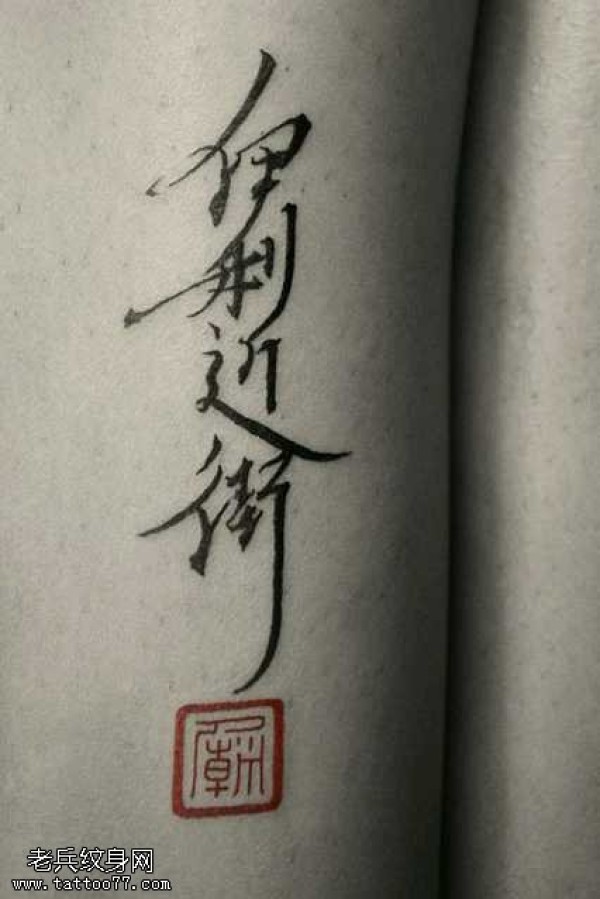 伊利近街
老兵纹身网
www.tattoo77.com